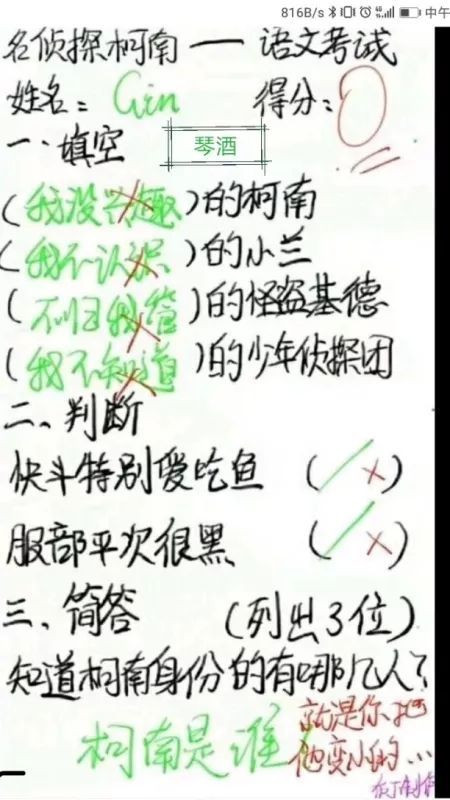 816B/s 中午
名侦探柯南——语文考试
姓名：Gin 得分：0
一、填空 琴酒
(我没兴趣)的柯南
(我不认识)的小兰
(不归我管)的怪盗基德
(我不知道)的少年侦探团
二、判断
快斗特别爱吃鱼 (✓×)
服部平次很黑 (✓×)
三、简答 (列出3位)
知道柯南身份的有哪几人?
柯南是谁 就是你把
他变小的…